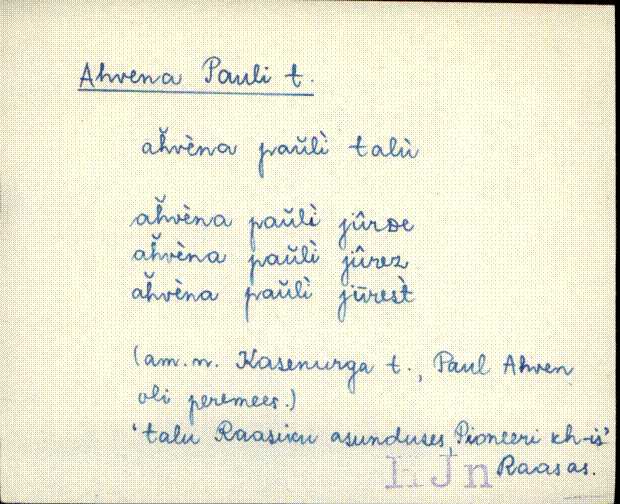 Ahvena Pauli t.
ah̆vèna paŭlì talù
ah̆vèna paŭlì jûrᴅe
ah̆vèna paŭlì jûrez
ah̆vèna paŭlì jūres̀t
(am. n. Kasenurga t., Paul Ahven
oli peremees.)
'talu Raasiku asunduses, Pioneeri kh-is'
HJn Raasas.